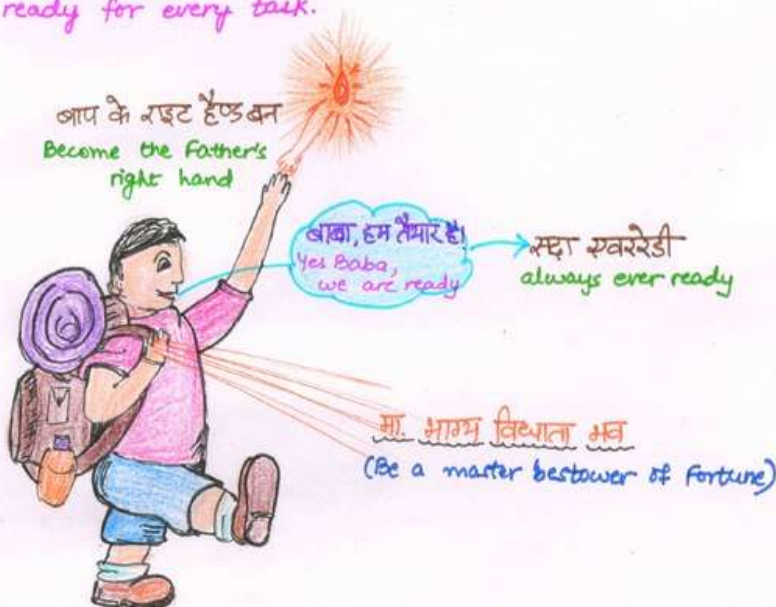 ready for every task.
बाप के राइट हैण्ड बन
Become the Father's
right hand
बाबा, हम तैयार है।
Yes Baba,
we are ready
सदा एवररेडी
always ever ready
मा. भाग्य विधाता भव
(Be a master bestower of fortune)